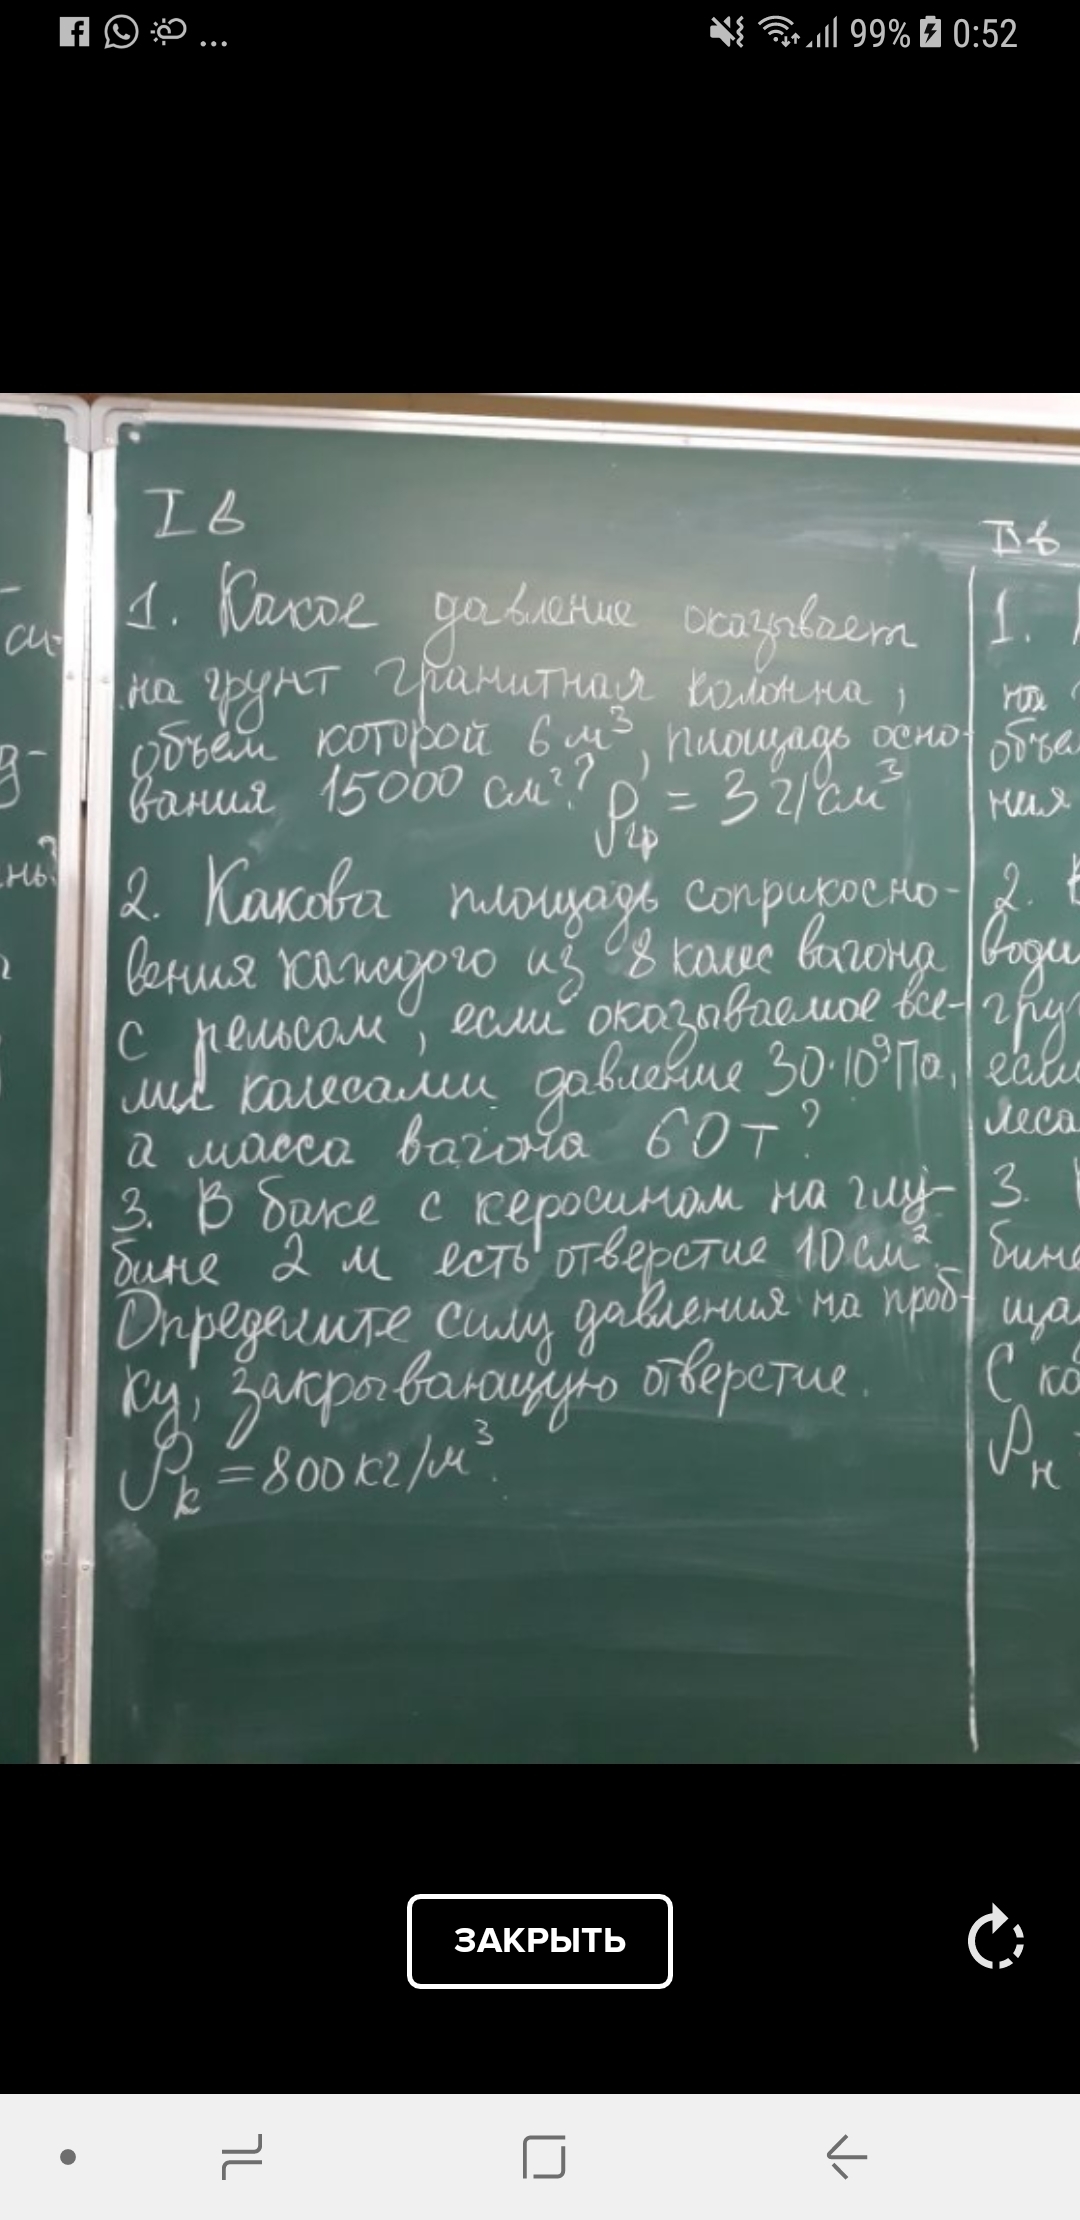 99% 0:52
I в
1. Какое давление оказывает
на грунт гранитная колонна,
объем которой 6 м³, площадь осно-
вания 15000 см²? ρгр = 3 г/см³
2. Какова площадь соприкосно-
вения каждого из 8 колес вагона
с рельсом, если оказываемое все-
ми колесами давление 30·10⁹ Па,
а масса вагона 60 т?
3. В баке с керосином на глу-
бине 2 м есть отверстие 10 см².
Определите силу давления на проб-
ку, закрывающую отверстие.
ρк = 800 кг/м³.
II в
1.
на
объе
ния
2.
води
гру
если
леса
3.
бине
ща
С ко
ρн
ЗАКРЫТЬ